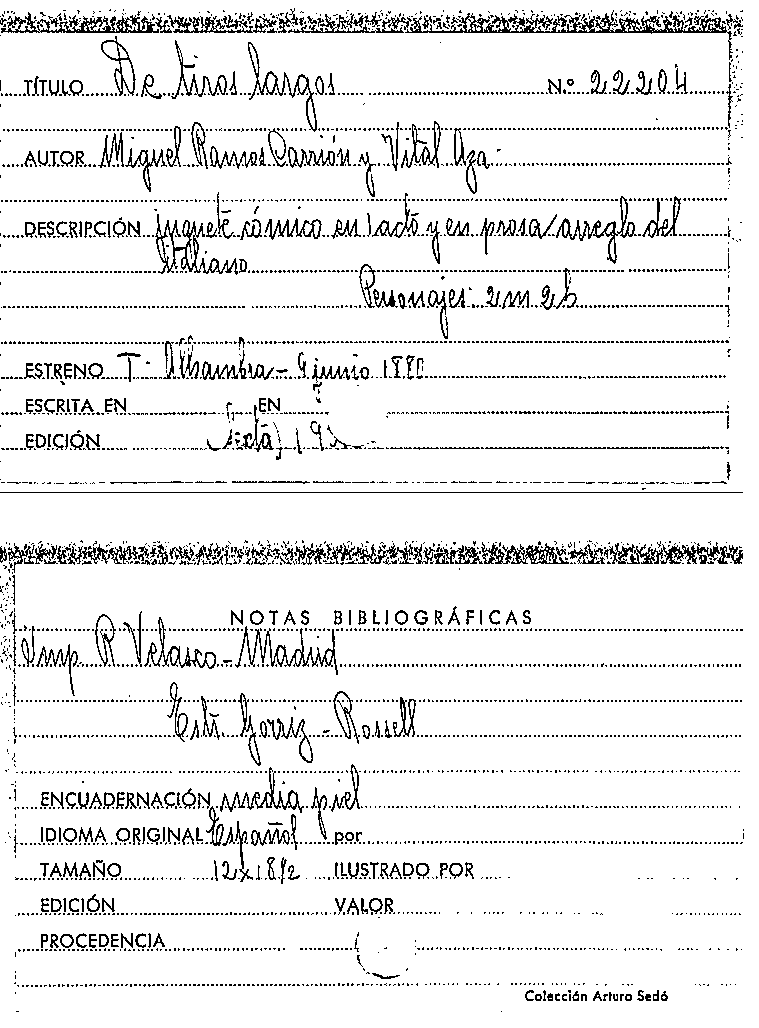 TÍTULO De tiros largos N.º 22204
AUTOR Miguel Ramos Carrión y Vital Aza-
DESCRIPCIÓN juguete cómico en 1 acto y en prosa/arreglo del
italiano
Personajes: 2 m 2 h
ESTRENO T. Alhambra - 9 junio 1880
ESCRITA EN EN
EDICIÓN Sexta, 19
NOTAS BIBLIOGRÁFICAS
Imp R Velasco - Madrid
Estr. Gorriz - Rossell
ENCUADERNACIÓN media piel
IDIOMA ORIGINAL Español por
TAMAÑO 12x18 1/2 ILUSTRADO POR
EDICIÓN VALOR
PROCEDENCIA
Colección Arturo Sedó